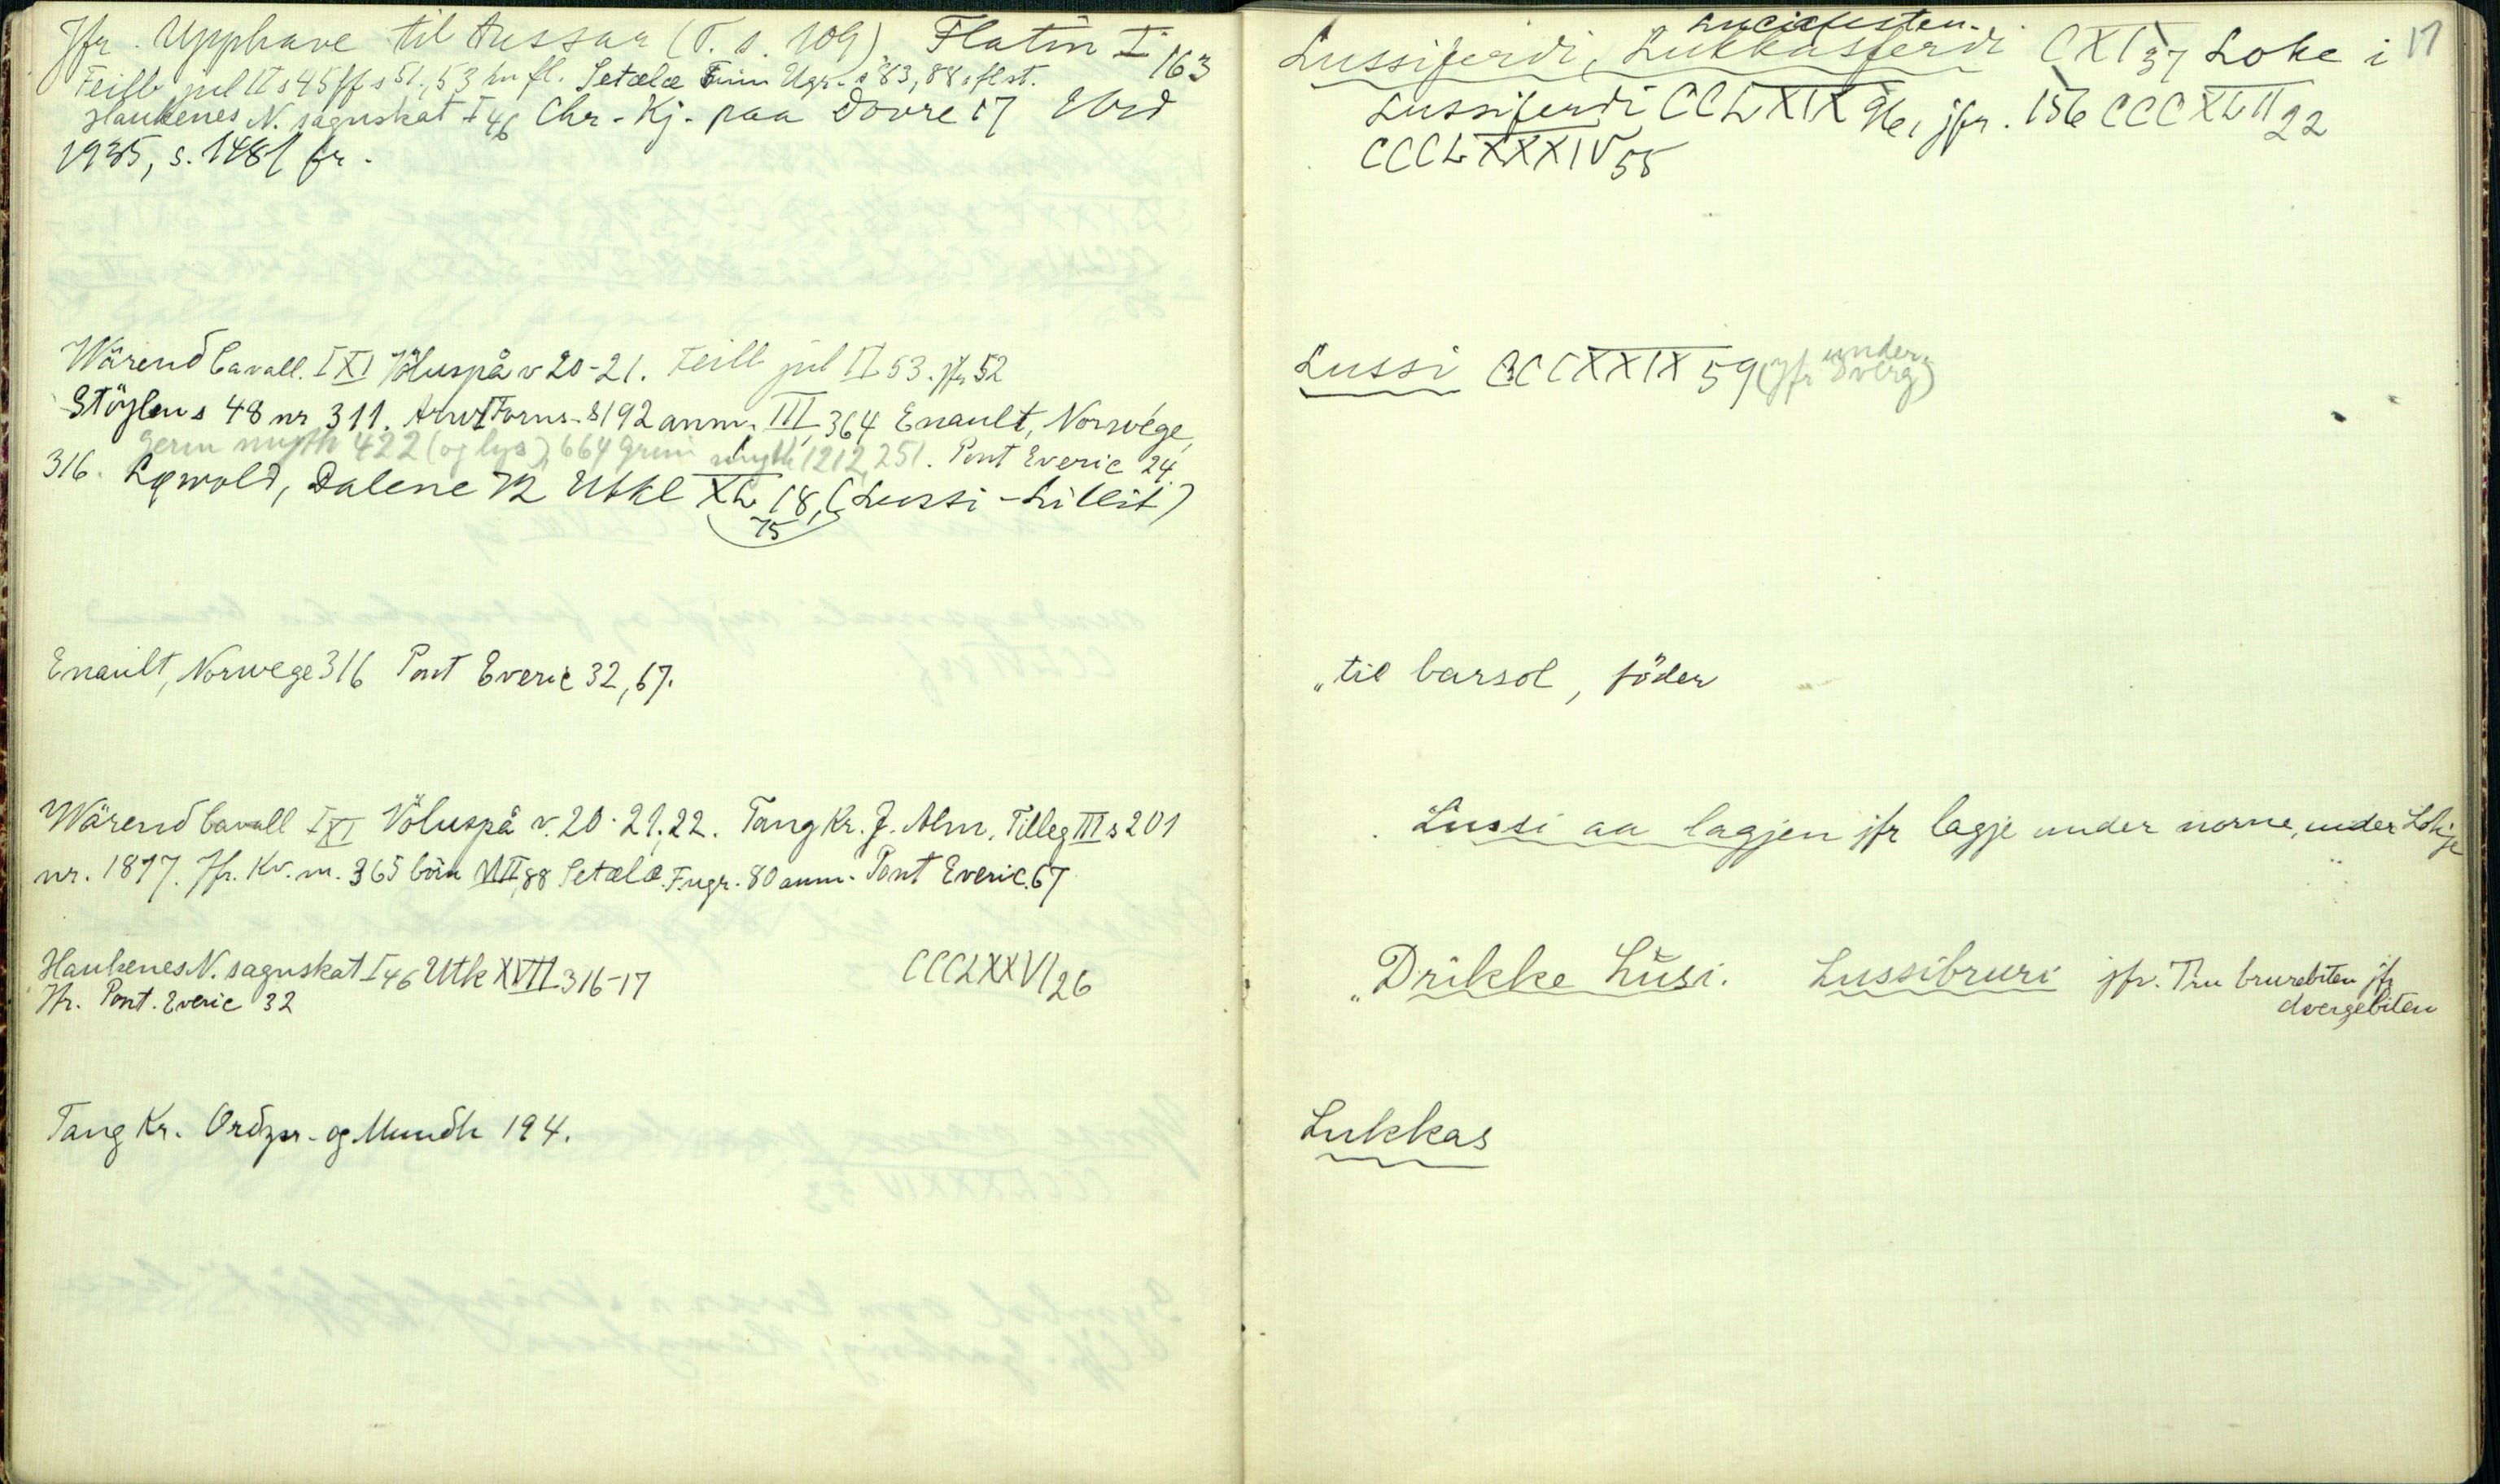 Jfr. Upphave til Aussar (T. s. 109). Flatin I 163
Feilb jul II s 45 ff s 51, 53 hn fl. Setälä Finn Ugr. s 83, 88 o fl st.
Haukenes N. sagnskat I 46 Chr. Kj. paa Dovre 17
1935, s. 148 fr.
Wärend Cavall. I XI Völuspå v 20-21. Feilb jul II 53. jfr 52
Støylen s 48 nr 311. Forns. s 192 anm. III, 364 Enault, Norwége,
Germ myth 422 (og lys), 664 Grim myth 1212, 251. Pont Everic 24.
316. Løwold, Dalene 72 Utkl XL 18, (Lussi-Lillit)
75
Enault, Norwege 316 Pont Everic 32, 67.
Wärend Cavall I XI Völuspå v. 20-21, 22. Tang Kr. J. Alm. Tilleg III s 201
nr. 1877. Jfr. Kv. m. 365 born VIII, 88 Setälä. F.ugr. 80 anm. Pont Everic. 67
Haukenes N. sagnskat I 46 Utk XVII 316-17 CCCLXXVI 26
Jfr. Pont. Everic 32
Tang Kr. Ordspr. og Mundh 194.
17
Luciafesten.
Lussiferdi, Lukkasferdi CXI 37 Loke i
Lussiferdi CCLXIX 96, jfr. 156 CCCXLII 22
CCCLXXXIV 55
Lussi CCCXXIX 59 (jfr under dverg)
"til barsol, föder
Lussi aa lagjen jfr lagje under norne, under Lokje
"Drikke Lusi. Lussibruri jfr. Tru brurebiten jfr
dvergebiten
Lukkas